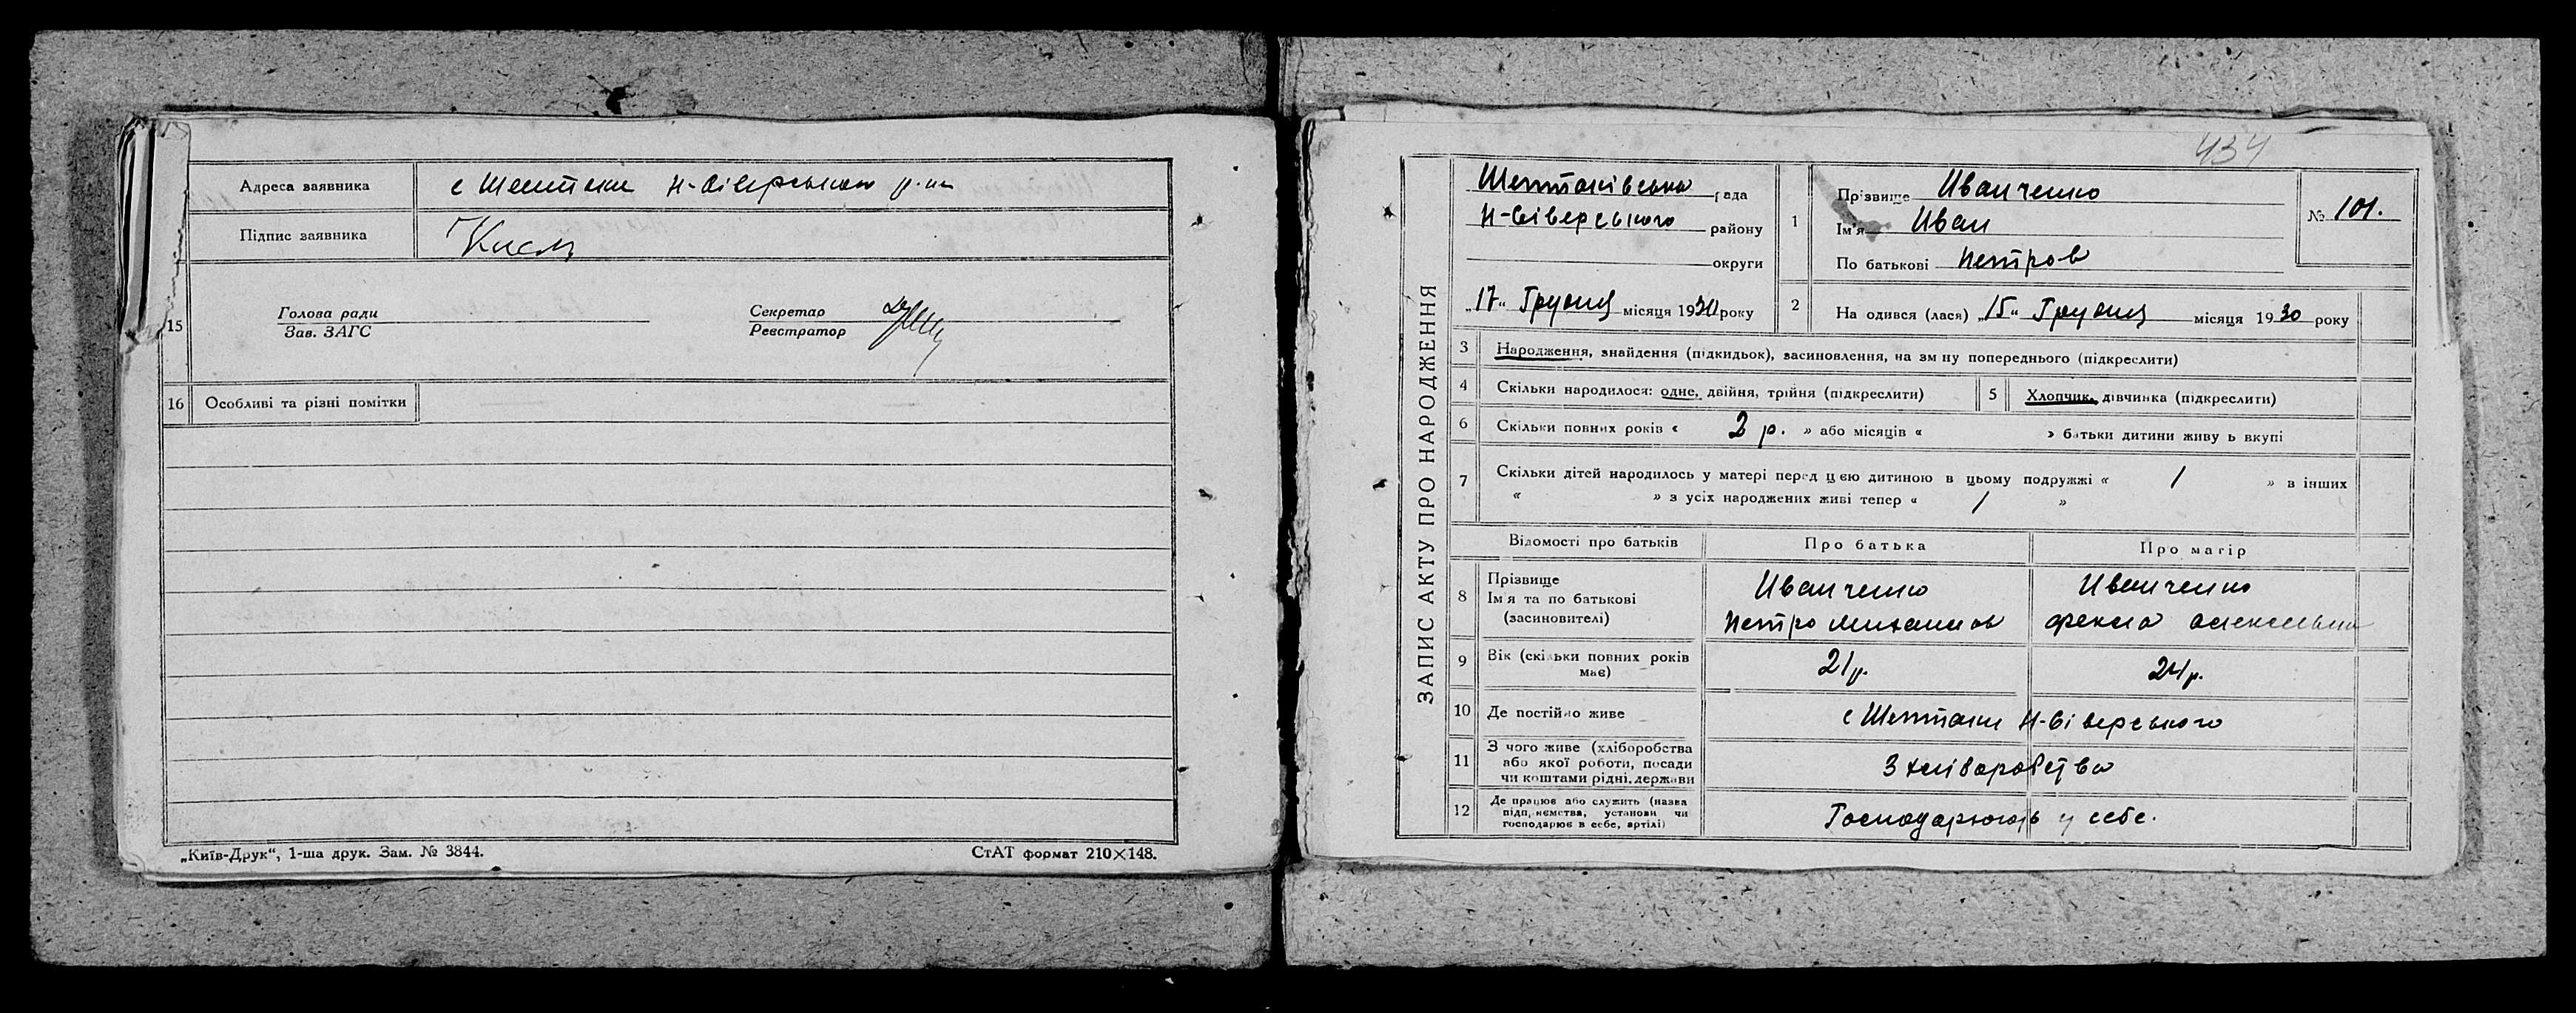 Адреса заявника с Шептаки Н-Сіверського р-ну
Підпис заявника
15
Голова ради
Зав. ЗАГС
Секретар
Реєстратор
16 Особливі та різні помітки
„Київ-Друк“, 1-ша друк. Зам. № 3844.
СтАТ формат 210×148.
434
ЗАПИС АКТУ ПРО НАРОДЖЕННЯ
Шептаківська рада
Н-Сіверського району
округи
„17“ Грудня місяця 1930 року
1 Прізвище Иванченко
Ім'я Иван
По батькові Петров
№ 101.
2 На одився (лася) „15“ Грудня місяця 1930 року
3 Народження, знайдення (підкидьок), засиновлення, на зм ну попереднього (підкреслити)
4 Скільки народилося: одне, двійня, трійня (підкреслити) 5 Хлопчик, дівчинка (підкреслити)
6 Скільки повних років « 2 р. » або місяців « » батьки дитини живу ь вкупі
7 Скільки дітей народилось у матері перед цією дитиною в цьому подружжі « 1 » в інших
« » з усіх народжених живі тепер « 1 »
Відомості про батьків Про батька Про матір
8 Прізвище Иванченко Иванченко
Ім'я та по батькові
(засиновителі) Петро Михаилов Фекла
9 Вік (скільки повних років 21 р. 24 р.
має)
10 Де постійно живе с Шептаки Н-Сіверського
11 З чого живе (хліборобства
або якої роботи, посади З хліборобства
чи коштами рідні, держави
12 Де працює або служить (назва
підприємства, установи чи Господарюють у себе.
господарює в себе, артілі)